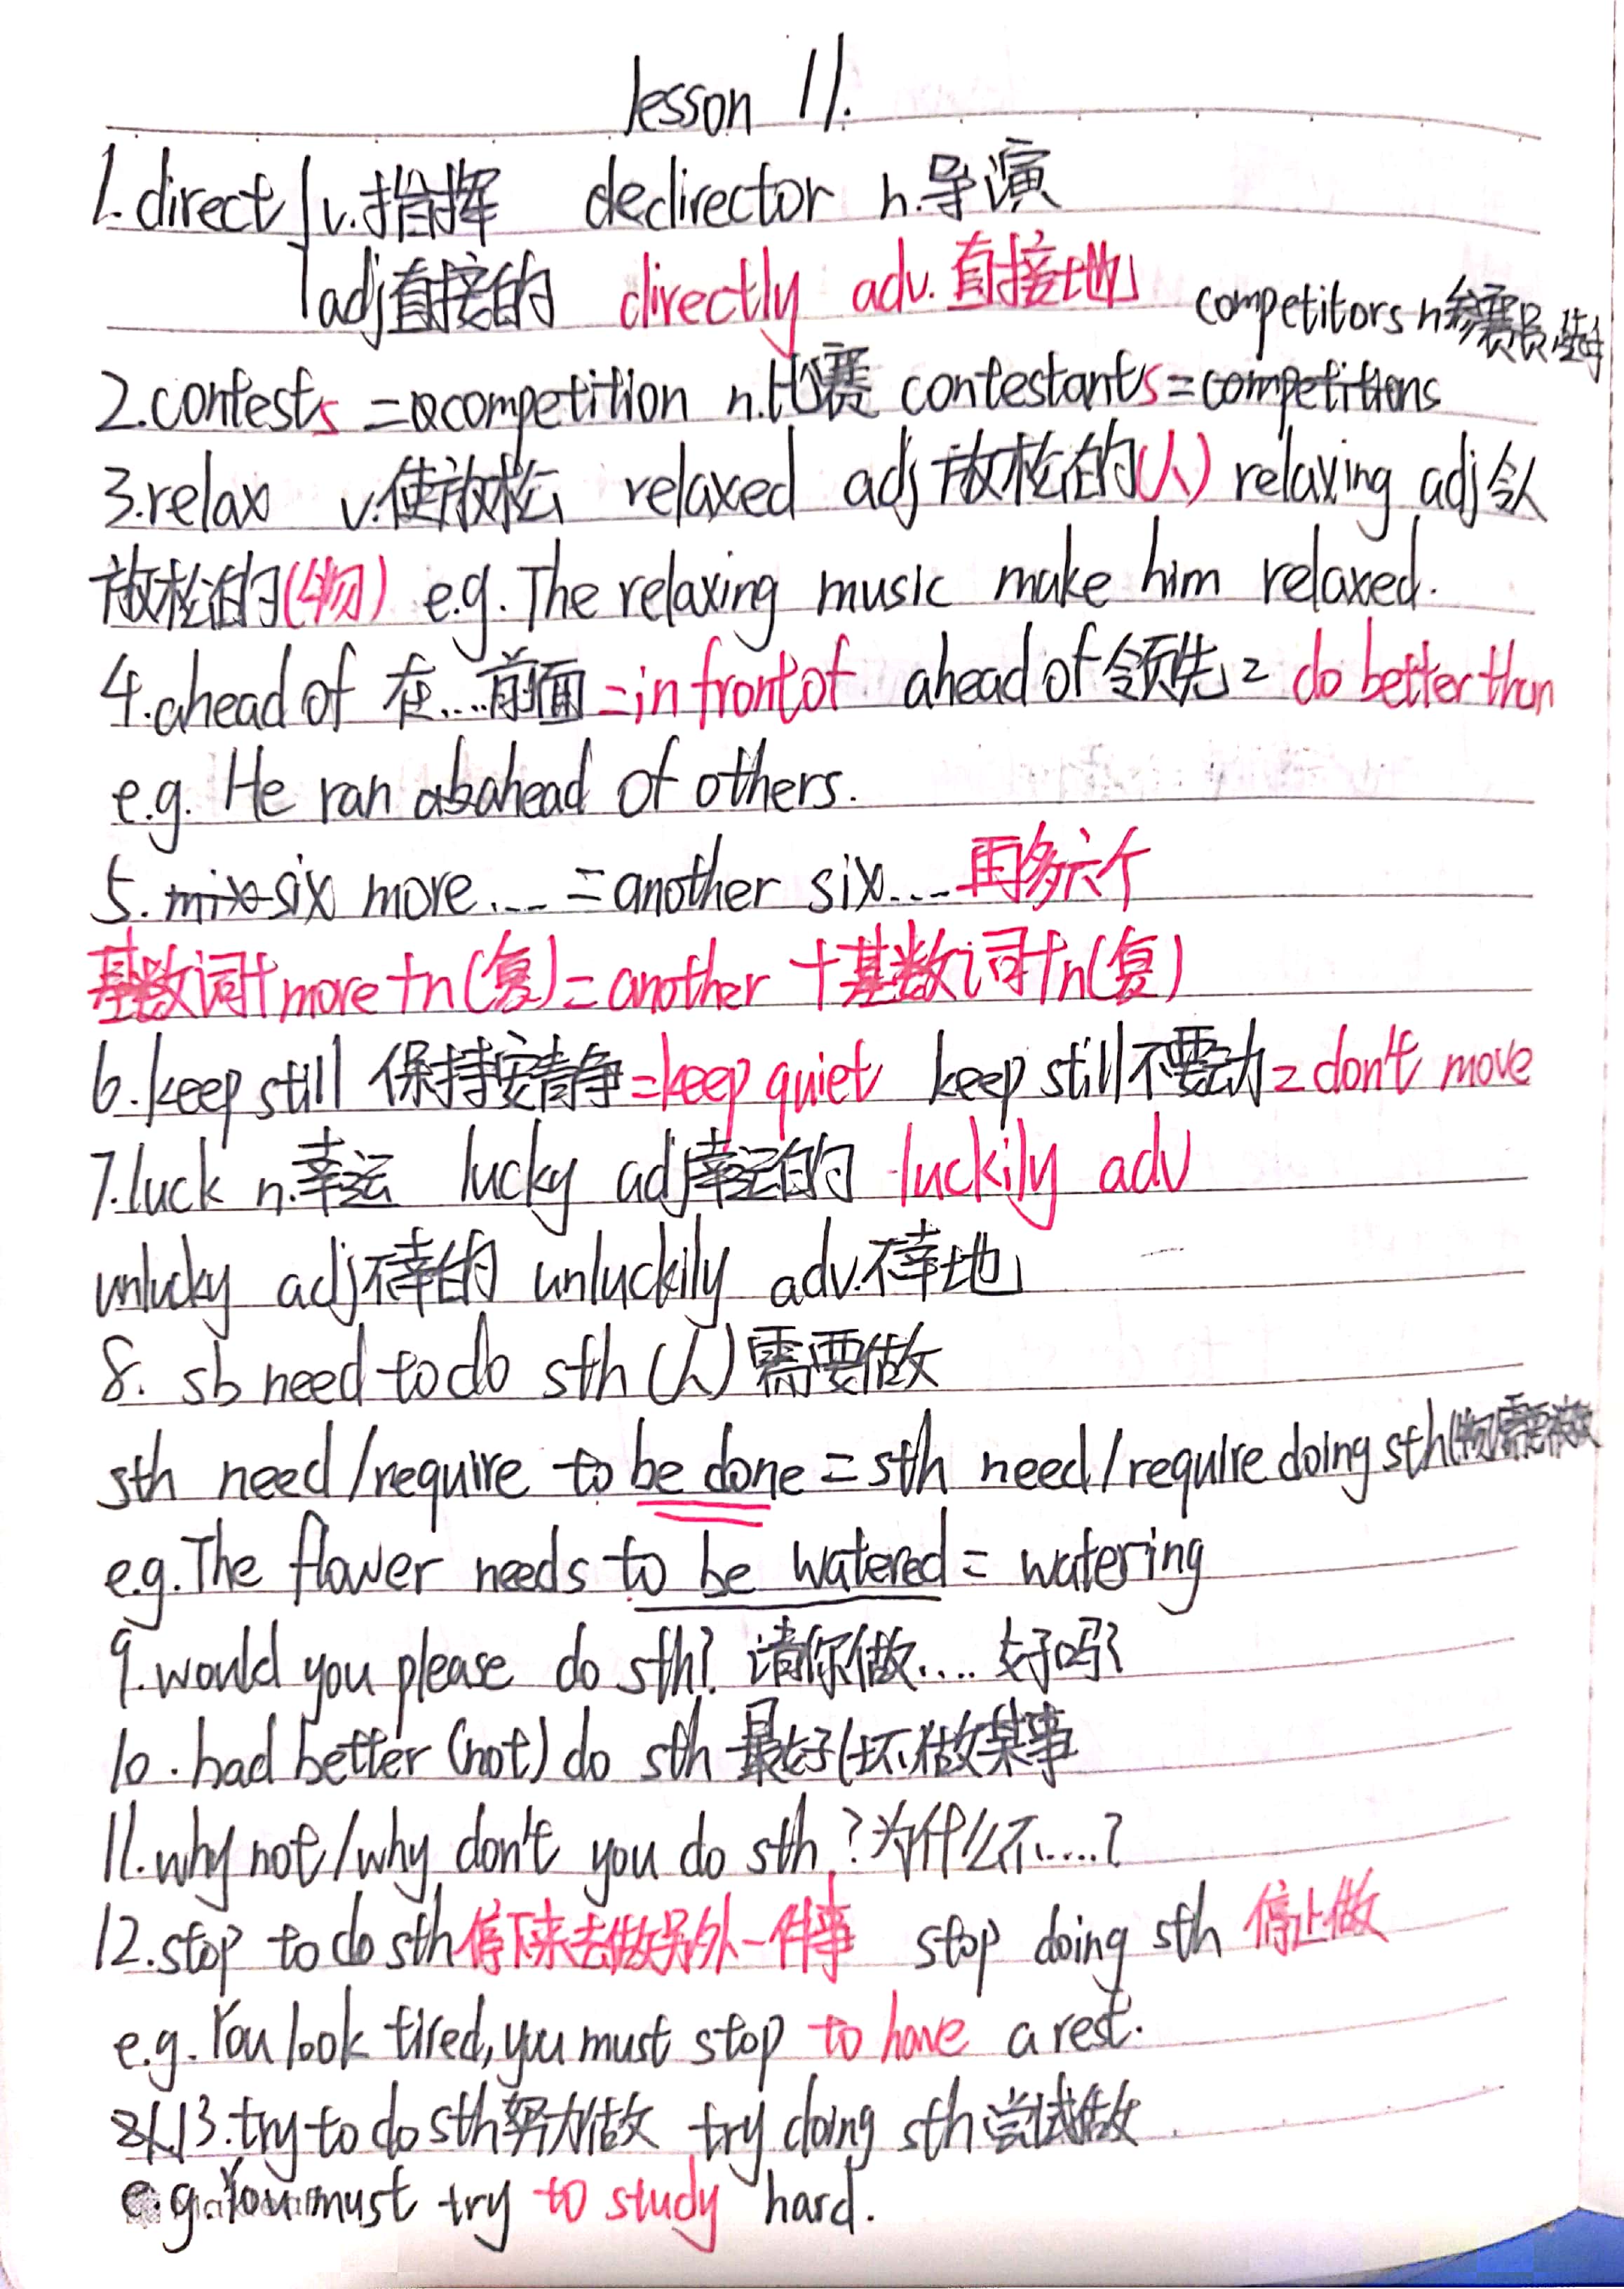 lesson 11.
1.direct v.指挥 dedirector n.导演
adj直接的 directly adv.直接地
competitors n参赛员,选手
2.contests =competition n.比赛 contestants=competitions
3.relax v.使放松 relaxed adj放松的(人) relaxing adj令人
放松的(物) e.g.The relaxing music make him relaxed.
4.ahead of 在....前面=in front of ahead of领先= do better than
e.g. He ran abahead of others.
5. mix six more.... =another six.... 再多六个
基数词+more+n(复)=another +基数词+n(复)
6.keep still 保持安静=keep quiet keep still不要动=don't move
7.luck n.幸运 lucky adj幸运的 luckily adv
unlucky adj不幸的 unluckily adv.不幸地
8. sb need to do sth (人)需要做
sth need/require to be done=sth need/require doing sth(物)需要被做
e.g.The flower needs to be watered= watering
9.would you please do sth? 请你做.... 好吗?
10.had better (not) do sth 最好(坏)做某事
11.why not/why don't you do sth ?为什么不.....?
12.stop to do sth停下来去做另外一件事 stop doing sth 停止做
e.g.You look tired,you must stop to have a rest.
13.try to do sth努力做 try doing sth尝试做
e.g.You must try to study hard.